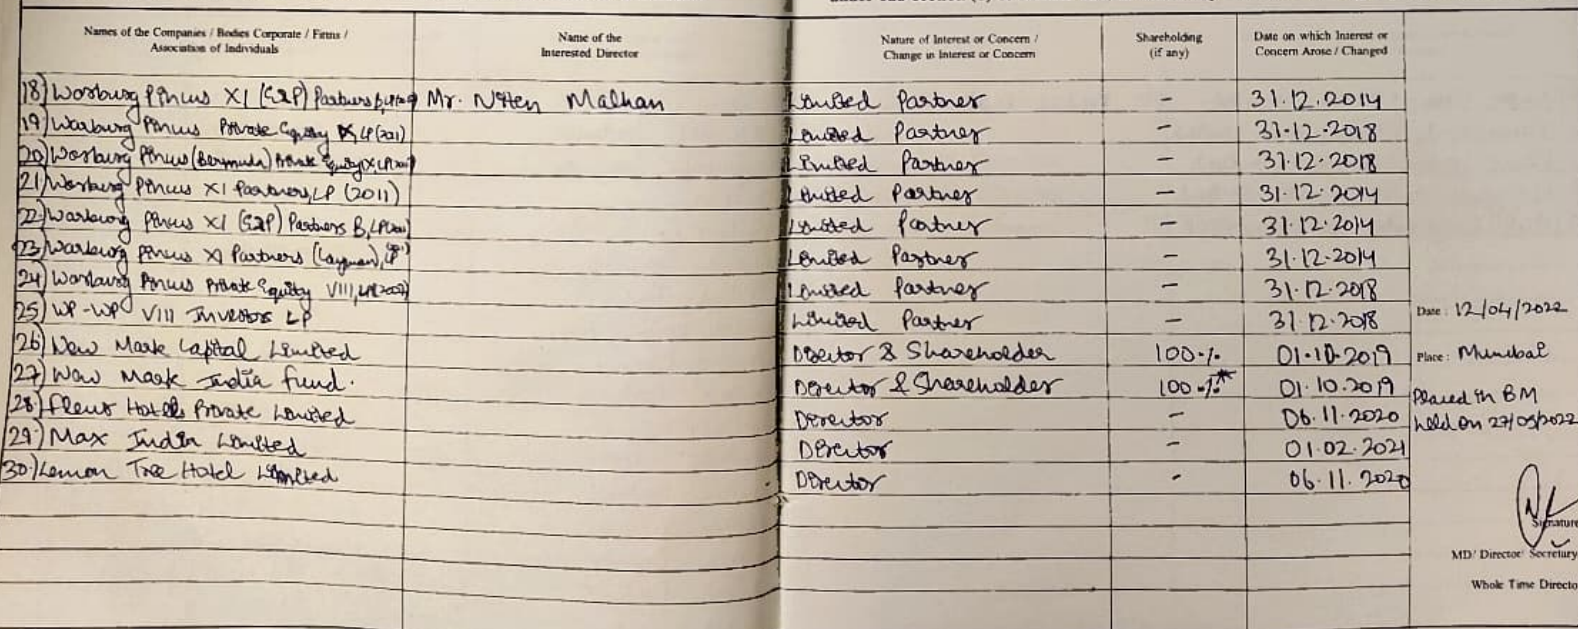 Names of the Companies / Bodies Corporate / Firms /
Association of Individuals
Name of the
Interested Director
Nature of Interest or Concern /
Change in Interest or Concern
Shareholding
(if any)
Date on which Interest or
Concern Arose / Changed
18) Warburg Pincus XI (E&P) Partners Mr. Niten Malhan Limited Partner - 31.12.2014
19) Warburg Pincus Private Equity X, LP Limited Partner - 31.12.2018
20) Warburg Pincus (Bermuda) Private Equity X, LP Limited Partner - 31.12.2018
21) Warburg Pincus XI Partners, LP (2011) Limited Partner - 31.12.2014
22) Warburg Pincus XI (E&P) Partners B, LP Limited Partner - 31.12.2014
23) Warburg Pincus XI Partners (Cayman), LP Limited Partner - 31.12.2014
24) Warburg Pincus Private Equity VIII, LP Limited Partner - 31.12.2018
25) WP-WP VIII Investors LP Limited Partner - 31.12.2018
26) New Mark Capital Limited Director & Shareholder 100% 01.10.2019
27) New Mark India Fund. Director & Shareholder 100%* 01.10.2019
28) Fleur Hotels Private Limited Director - 06.11.2020
29) Max India Limited Director - 01.02.2021
30) Lemon Tree Hotel Limited Director - 06.11.2020
Date : 12/04/2022
Place : Mumbai
Placed in BM
held on 27/05/2022
Signature
MD/ Director/ Secretary
Whole Time Directo